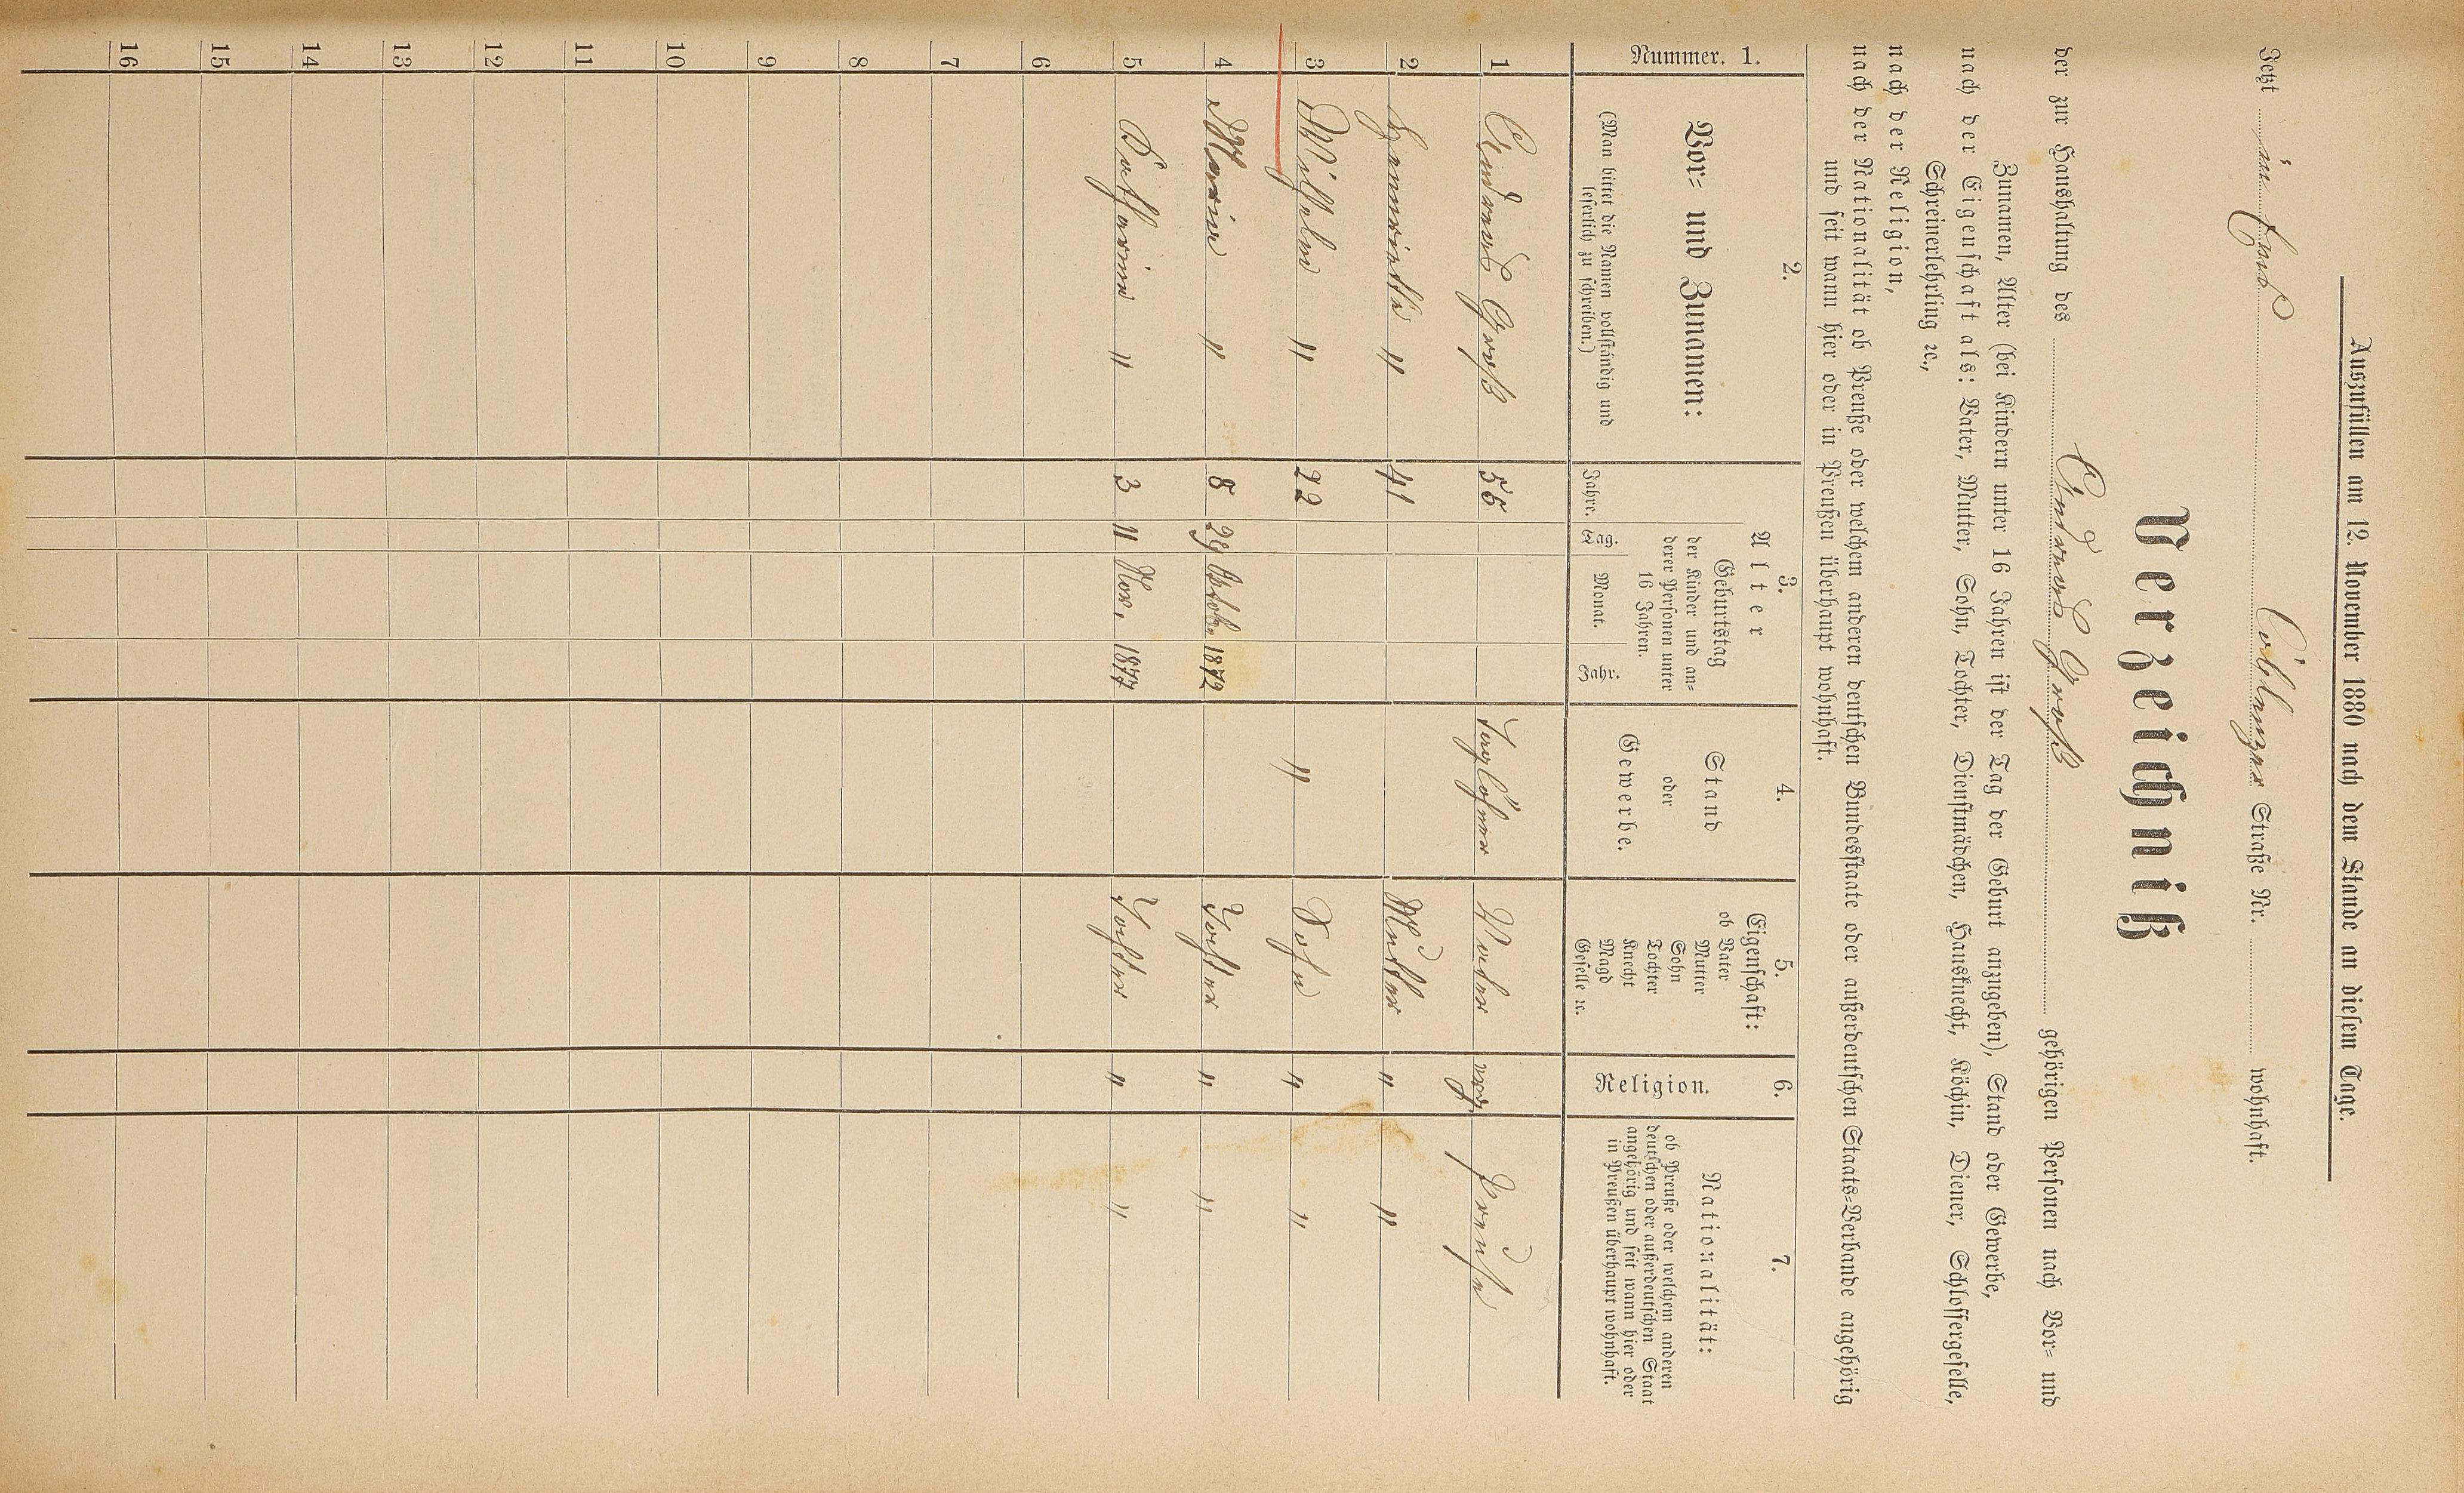 Auszufüllen am 12. November 1880 nach dem Stande an diesem Tage.
Jetzt in Ems Coblenzer Straße Nr. wohnhaft.
Verzeichniß
der zur Haushaltung des Andreas Groß gehörigen Personen nach Vor- und
Zunamen, Alter (bei Kindern unter 16 Jahren ist der Tag der Geburt anzugeben), Stand oder Gewerbe,
nach der Eigenschaft als: Vater, Mutter, Sohn, Tochter, Dienstmädchen, Hausknecht, Köchin, Diener, Schlossergeselle,
Schreinerlehrling ꝛc.,
nach der Religion,
nach der Nationalität ob Preuße oder welchem anderen deutschen Bundesstaate oder außerdeutschen Staats-Verbande angehörig
und seit wann hier oder in Preußen überhaupt wohnhaft.
Nummer. 1.
2.
Vor- und Zunamen:
(Man bittet die Namen vollständig und
leserlich zu schreiben.)
3.
Alter
Geburtstag
der Kinder und an-
derer Personen unter
16 Jahren.
Jahre. Tag. Monat. Jahr.
4.
Stand
oder
Gewerbe.
5.
Eigenschaft:
ob Vater
Mutter
Sohn
Tochter
Knecht
Magd
Geselle ꝛc.
6.
Religion.
7.
Nationalität:
ob Preuße oder welchen anderen
deutschen oder außerdeutschen Staat
angehörig und seit wann hier oder
in Preußen überhaupt wohnhaft.
1 Andreas Groß 56 Taglöhner Vater evg. Preuße
2 Henriette " 41 Mutter " "
3 Wilhelm " 22 " Sohn " "
4 Marie " 8 29 Octob. 1872 Tochter " "
5 Catharine " 3 11 Nov. 1877 Tochter " "
6
7
8
9
10
11
12
13
14
15
16